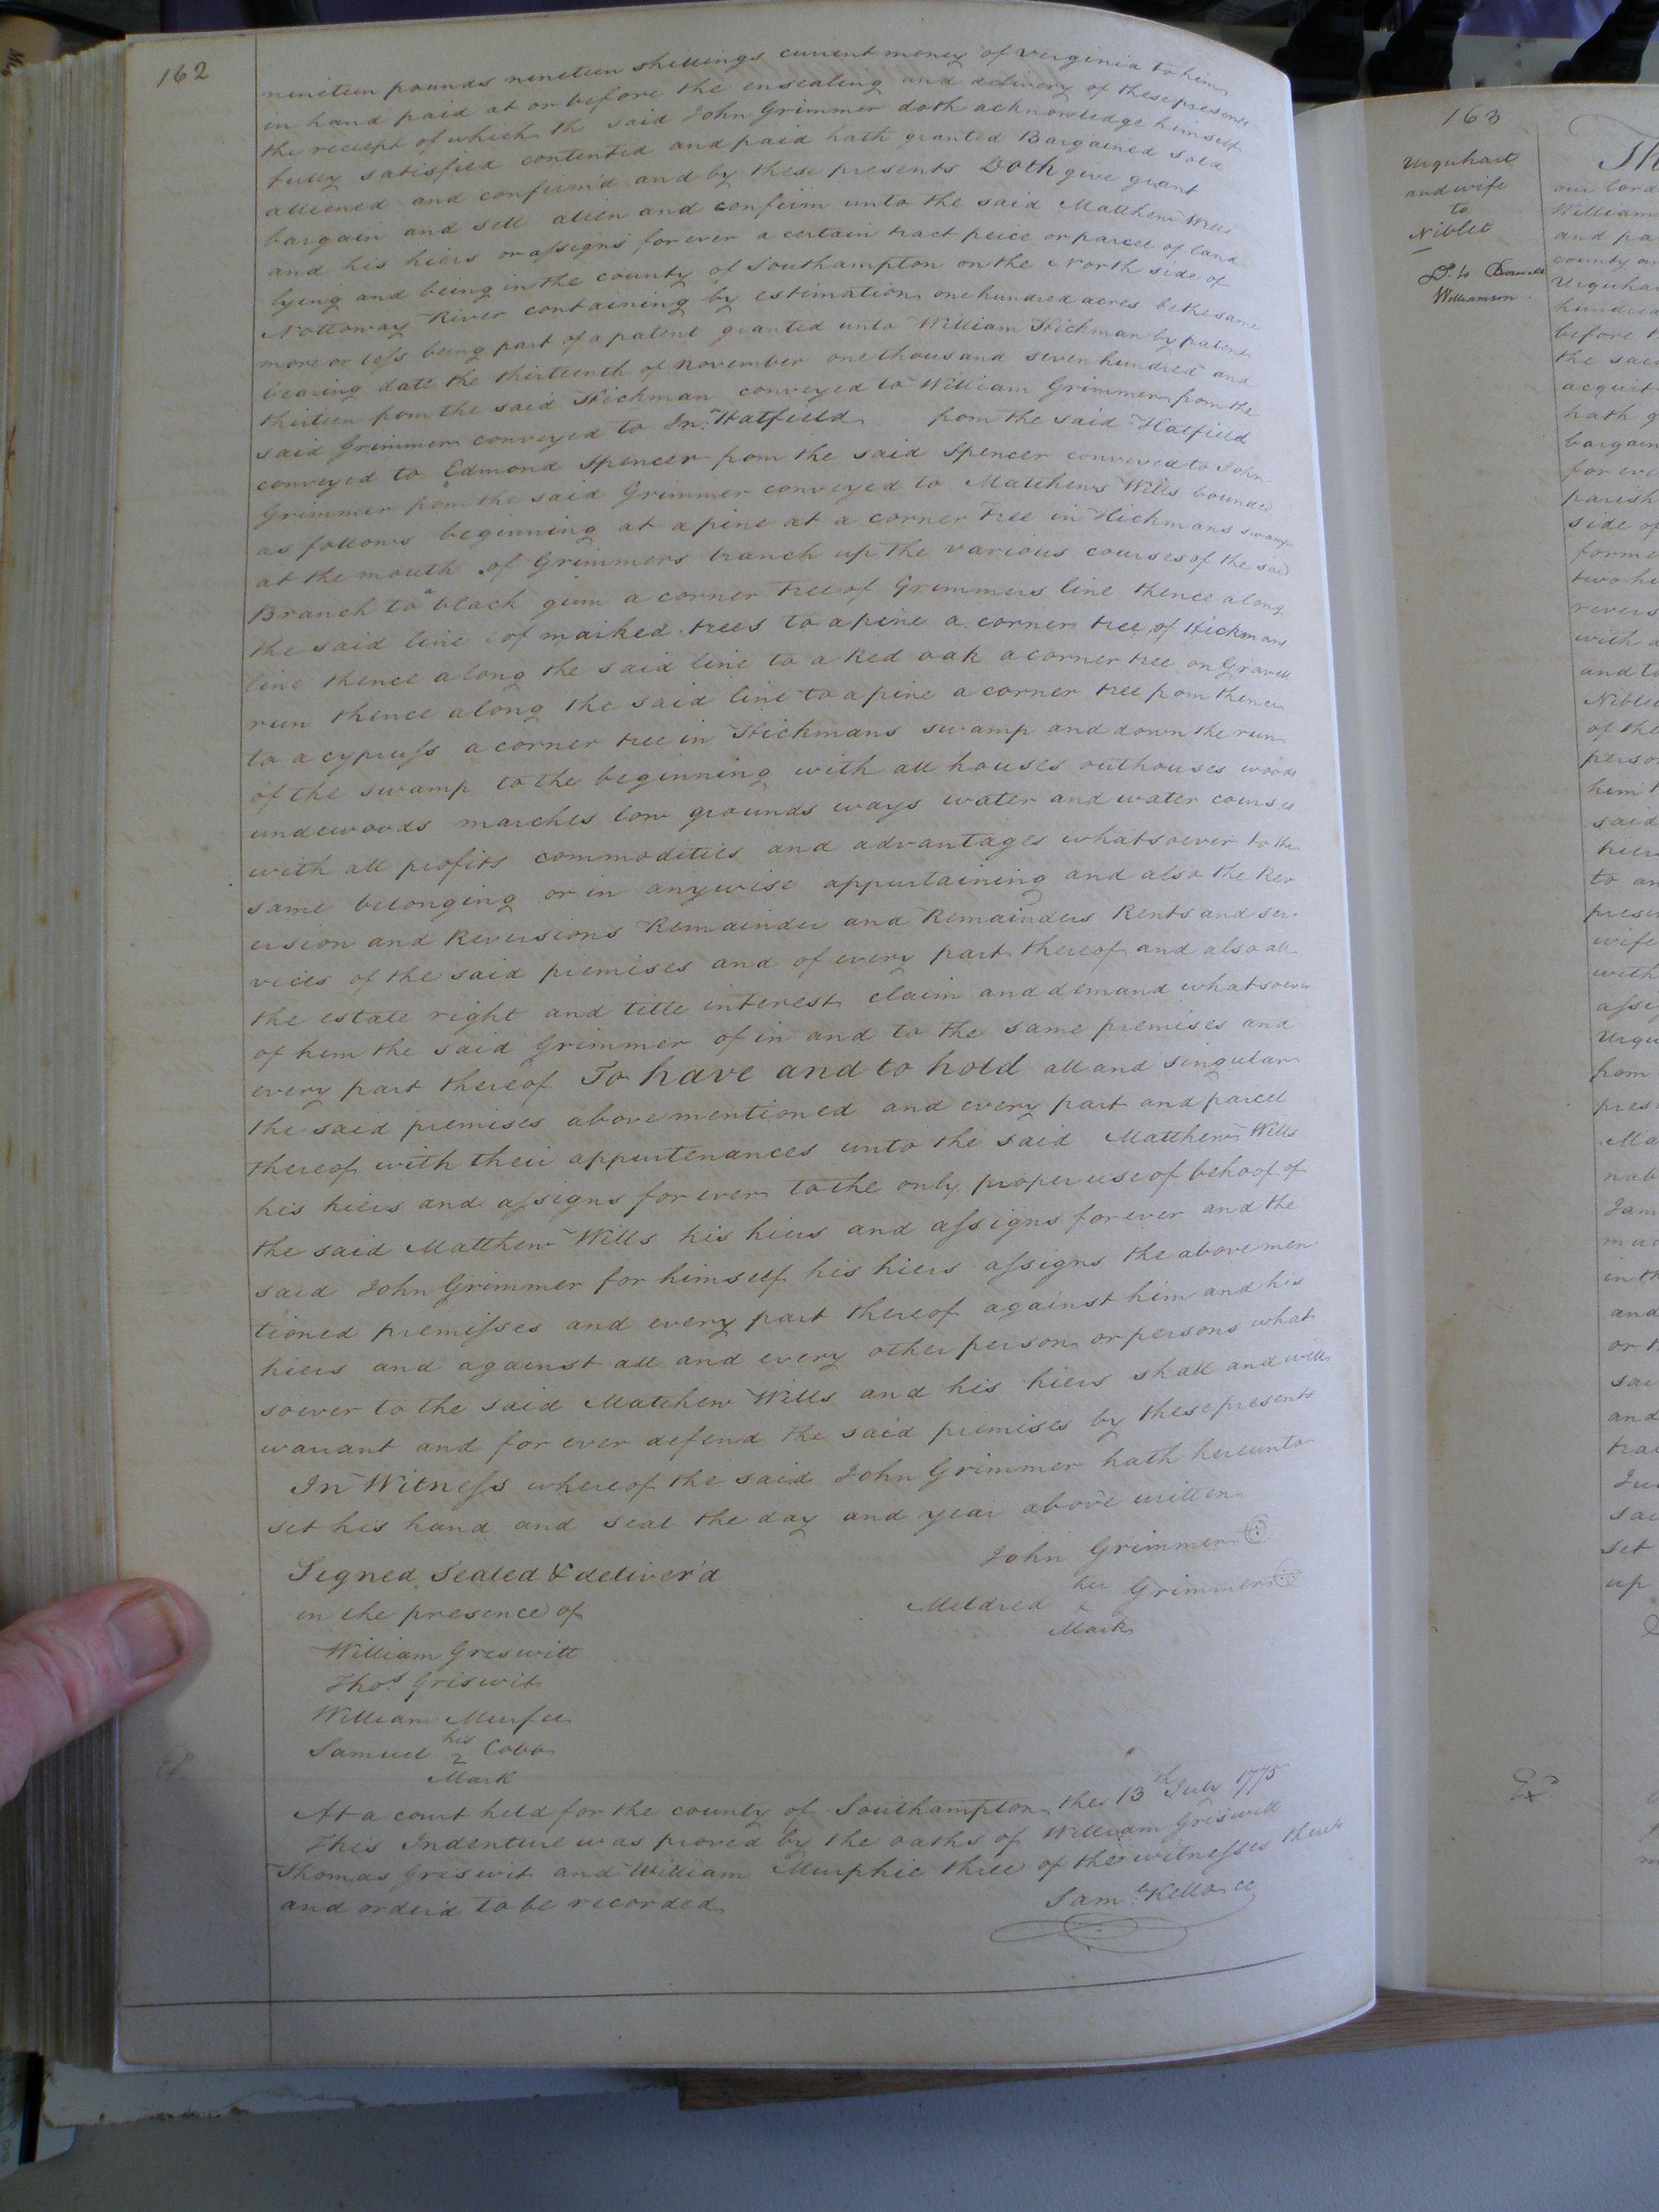 162
nineteen pounds nineteen shillings current money of Virginia to him
in hand paid at or before the ensealing and delivery of these presents
the reciept of which the said John Grimmer doth acknowledge himself
fully satisfied contented and paid hath granted Bargained sold
alliened and confirm'd and by these presents Doth give grant
bargain and sell alien and confirm unto the said Matthew Wills
and his hiers or assigns for ever a certain tract peice or parcel of land
lying and being in the county of Southampton on the North side of
Nottoway River containing by estimation one hundred acres be the same
more or less being part of a patent granted unto William Hickman by patent
bearing date the thirteenth of November one thousand seven hundred and
thirteen from the said Hickman conveyed to William Grimmer from the
said Grimmer conveyed to Jnº Hatfield from the said Hatfield
conveyed to Edmond Spencer from the said Spencer conveyed to John
Grimmer from the said Grimmer conveyed to Matthews Wills bounded
as follows beginning at a pine at a corner tree in Hickmans swamp
at the mouth of Grimmers branch up the various courses of the said
Branch to a black gum a corner tree of Grimmers line thence along
the said line of marked trees to a pine a corner tree of Hickmans
line thence along the said line to a Red oak a corner tree on Gravell
run thence along the said line to a pine a corner tree from thence
to a cypruss a corner tree in Hickmans swamp and down the run
of the swamp to the beginning with all houses outhouses woods
undewoods marches low grounds ways water and water courses
with all profits commodities and advantages whatsoever to the
same belonging or in anywise appurtaining and also the Rev
ersion and Reversions Remainder and Remainders Rents and ser
vices of the said premises and of every part thereof and also all
the estate right and title interest claim and demand whatsoever
of him the said Grimmer of in and to the same premises and
every part thereof To have and to hold all and singular
the said premises above mentioned and every part and parcel
thereof with their appurtenances unto the said Matthew Wills
his hiers and assigns for ever to the only proper use of behoof of
the said Matthew Wills his hiers and assigns for ever and the
said John Grimmer for himself his hiers assigns the above men
tioned premisses and every part thereof against him and his
hiers and against all and every other person or persons what
soever to the said Matthew Wills and his hiers shall and will
warrant and for ever defend the said premises by these presents
In Witness whereof the said John Grimmer hath hereunto
set his hand and seal the day and year above written
Signed Sealed & deliver'd
John Grimmer
in the presence of
her
Mildred x Grimmer
Mark
William Griswitt
Thoˢ Griswit
William Murfee
his
Samuel 2 Cobb
Mark
At a court held for the county of Southampton the 13th July 1775
This Indenture was proved by the oaths of William Griswitt
Thomas Griswit and William Murphie three of the witnesses thereto
and order'd to be recorded
Saml Kello cc
163
Urquhart
and wife
to
Niblet
D. to
Williamson
Th
our lord
William
and pa
county
Urquhar
hundred
before
the sai
acquit
hath g
bargain
for eve
parish
side of
forme
two hu
revers
with a
and to
Niblet
of the
perso
him
said
hiers
to an
presen
wife
with
assig
Urqu
from
pres
Ma
nab
Jam
mad
in th
and
or
sai
and
tra
sai
set
up